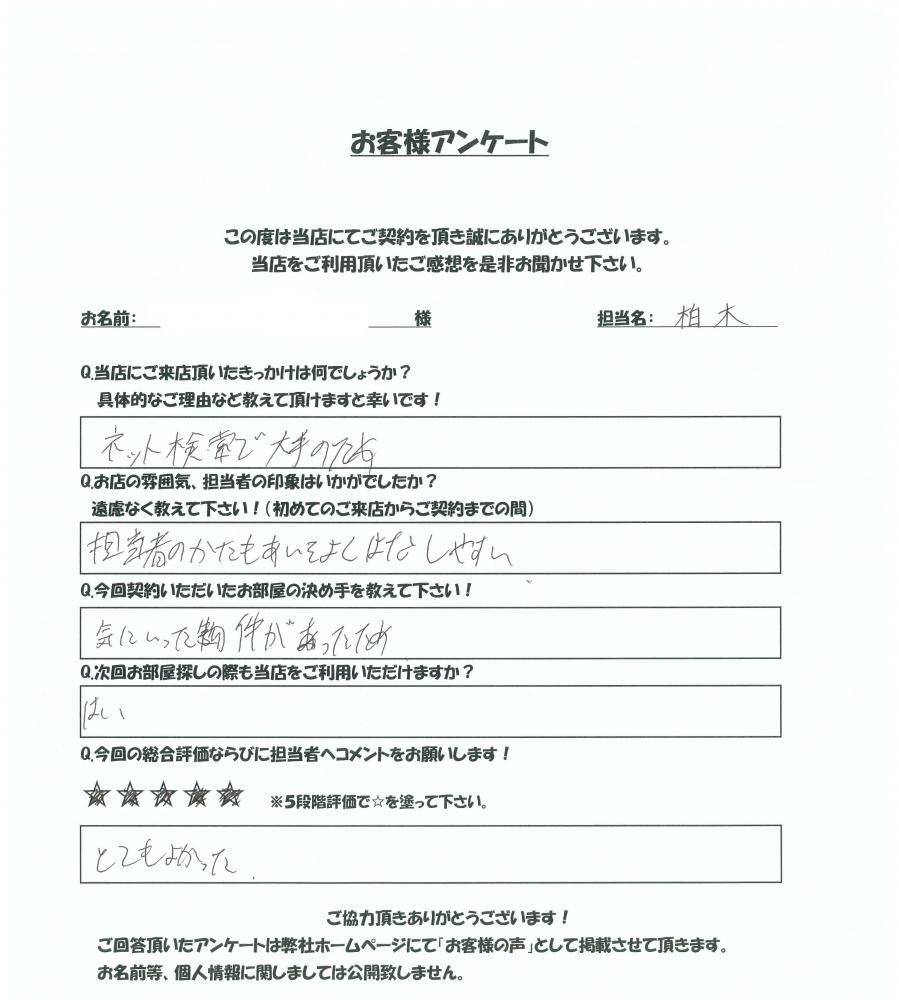 お客様アンケート
この度は当店にてご契約を頂き誠にありがとうございます。
当店をご利用頂いたご感想を是非お聞かせ下さい。
お名前: 様 担当名: 柏木
Q.当店にご来店頂いたきっかけは何でしょうか？
具体的なご理由など教えて頂けますと幸いです！
ネット検索で大手のため
Q.お店の雰囲気、担当者の印象はいかがでしたか？
遠慮なく教えて下さい！（初めてのご来店からご契約までの間）
担当者のかたもあいそよくはなしやすい
Q.今回契約いただいたお部屋の決め手を教えて下さい！
気にいった物件があったため
Q.次回お部屋探しの際も当店をご利用いただけますか？
はい
Q.今回の総合評価ならびに担当者へコメントをお願いします！
★★★★★ ※5段階評価で☆を塗って下さい。
とてもよかった.
ご協力頂きありがとうございます！
ご回答頂いたアンケートは弊社ホームページにて「お客様の声」として掲載させて頂きます。
お名前等、個人情報に関しましては公開致しません。